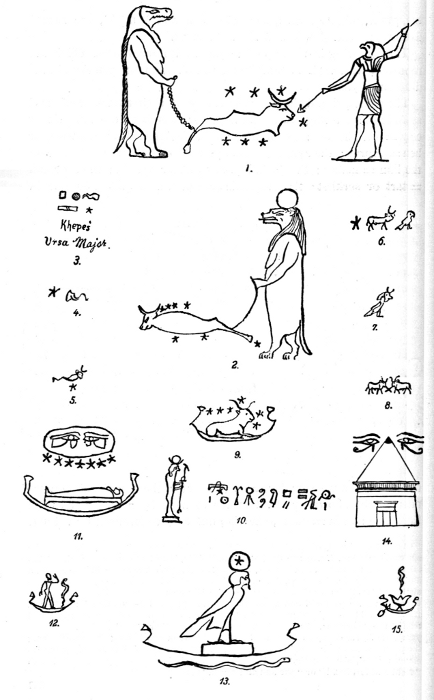 1.
Khepeš
Ursa Major.
3.
6.
4.
7.
2.
5.
8.
9.
10.
11.
14.
12.
15.
13.